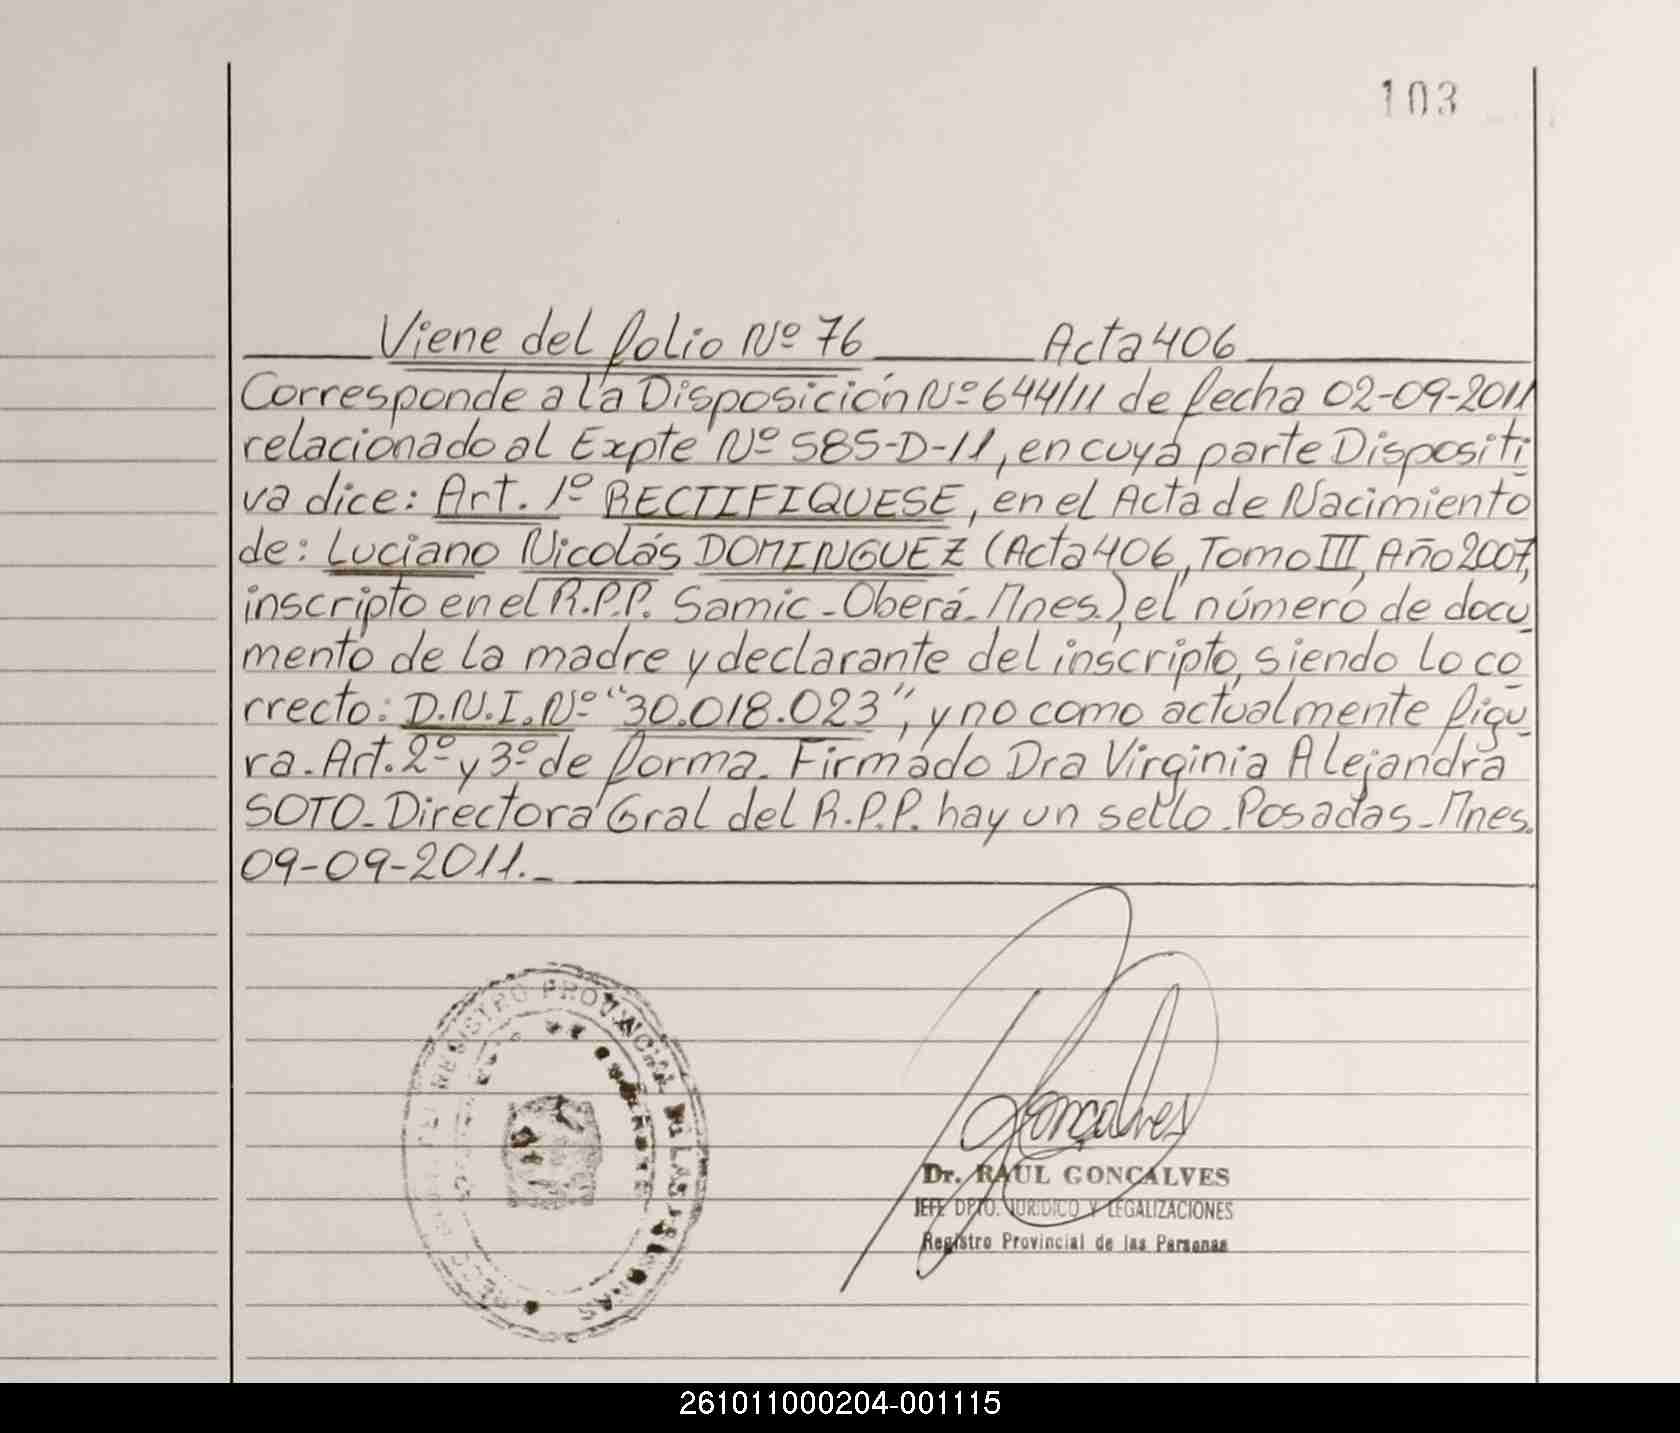 103
Viene del folio Nº 76 Acta 406
Corresponde a la Disposición Nº 644/11 de fecha 02-09-2011
relacionado al Expte Nº 585-D-11, en cuya parte Dispositi
va dice: Art. 1º RECTIFIQUESE, en el Acta de Nacimiento
de: Luciano Nicolás DOMINGUEZ (Acta 406, Tomo III, Año 2007,
inscripto en el R.P.P. Samic - Oberá - Mnes.) el número de docu
mento de la madre y declarante del inscripto, siendo lo co
rrecto: D.N.I. Nº "30.018.023", y no como actualmente figu
ra. Art. 2º y 3º de forma. Firmado Dra Virginia Alejandra
SOTO. Directora Gral del R.P.P. hay un sello. Posadas - Mnes.
09-09-2011.-
REGISTRO PROVINCIAL DE LAS PERSONAS
Goncalves
Dr. RAUL GONCALVES
JEFE DPTO. JURIDICO Y LEGALIZACIONES
Registro Provincial de las Personas
261011000204-001115